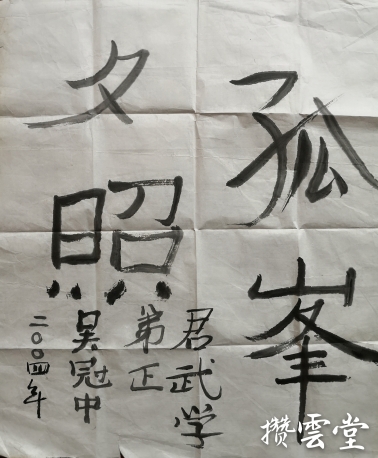 孤峯
夕照
君武学
弟正
吴冠中
二〇〇四年
攒雲堂